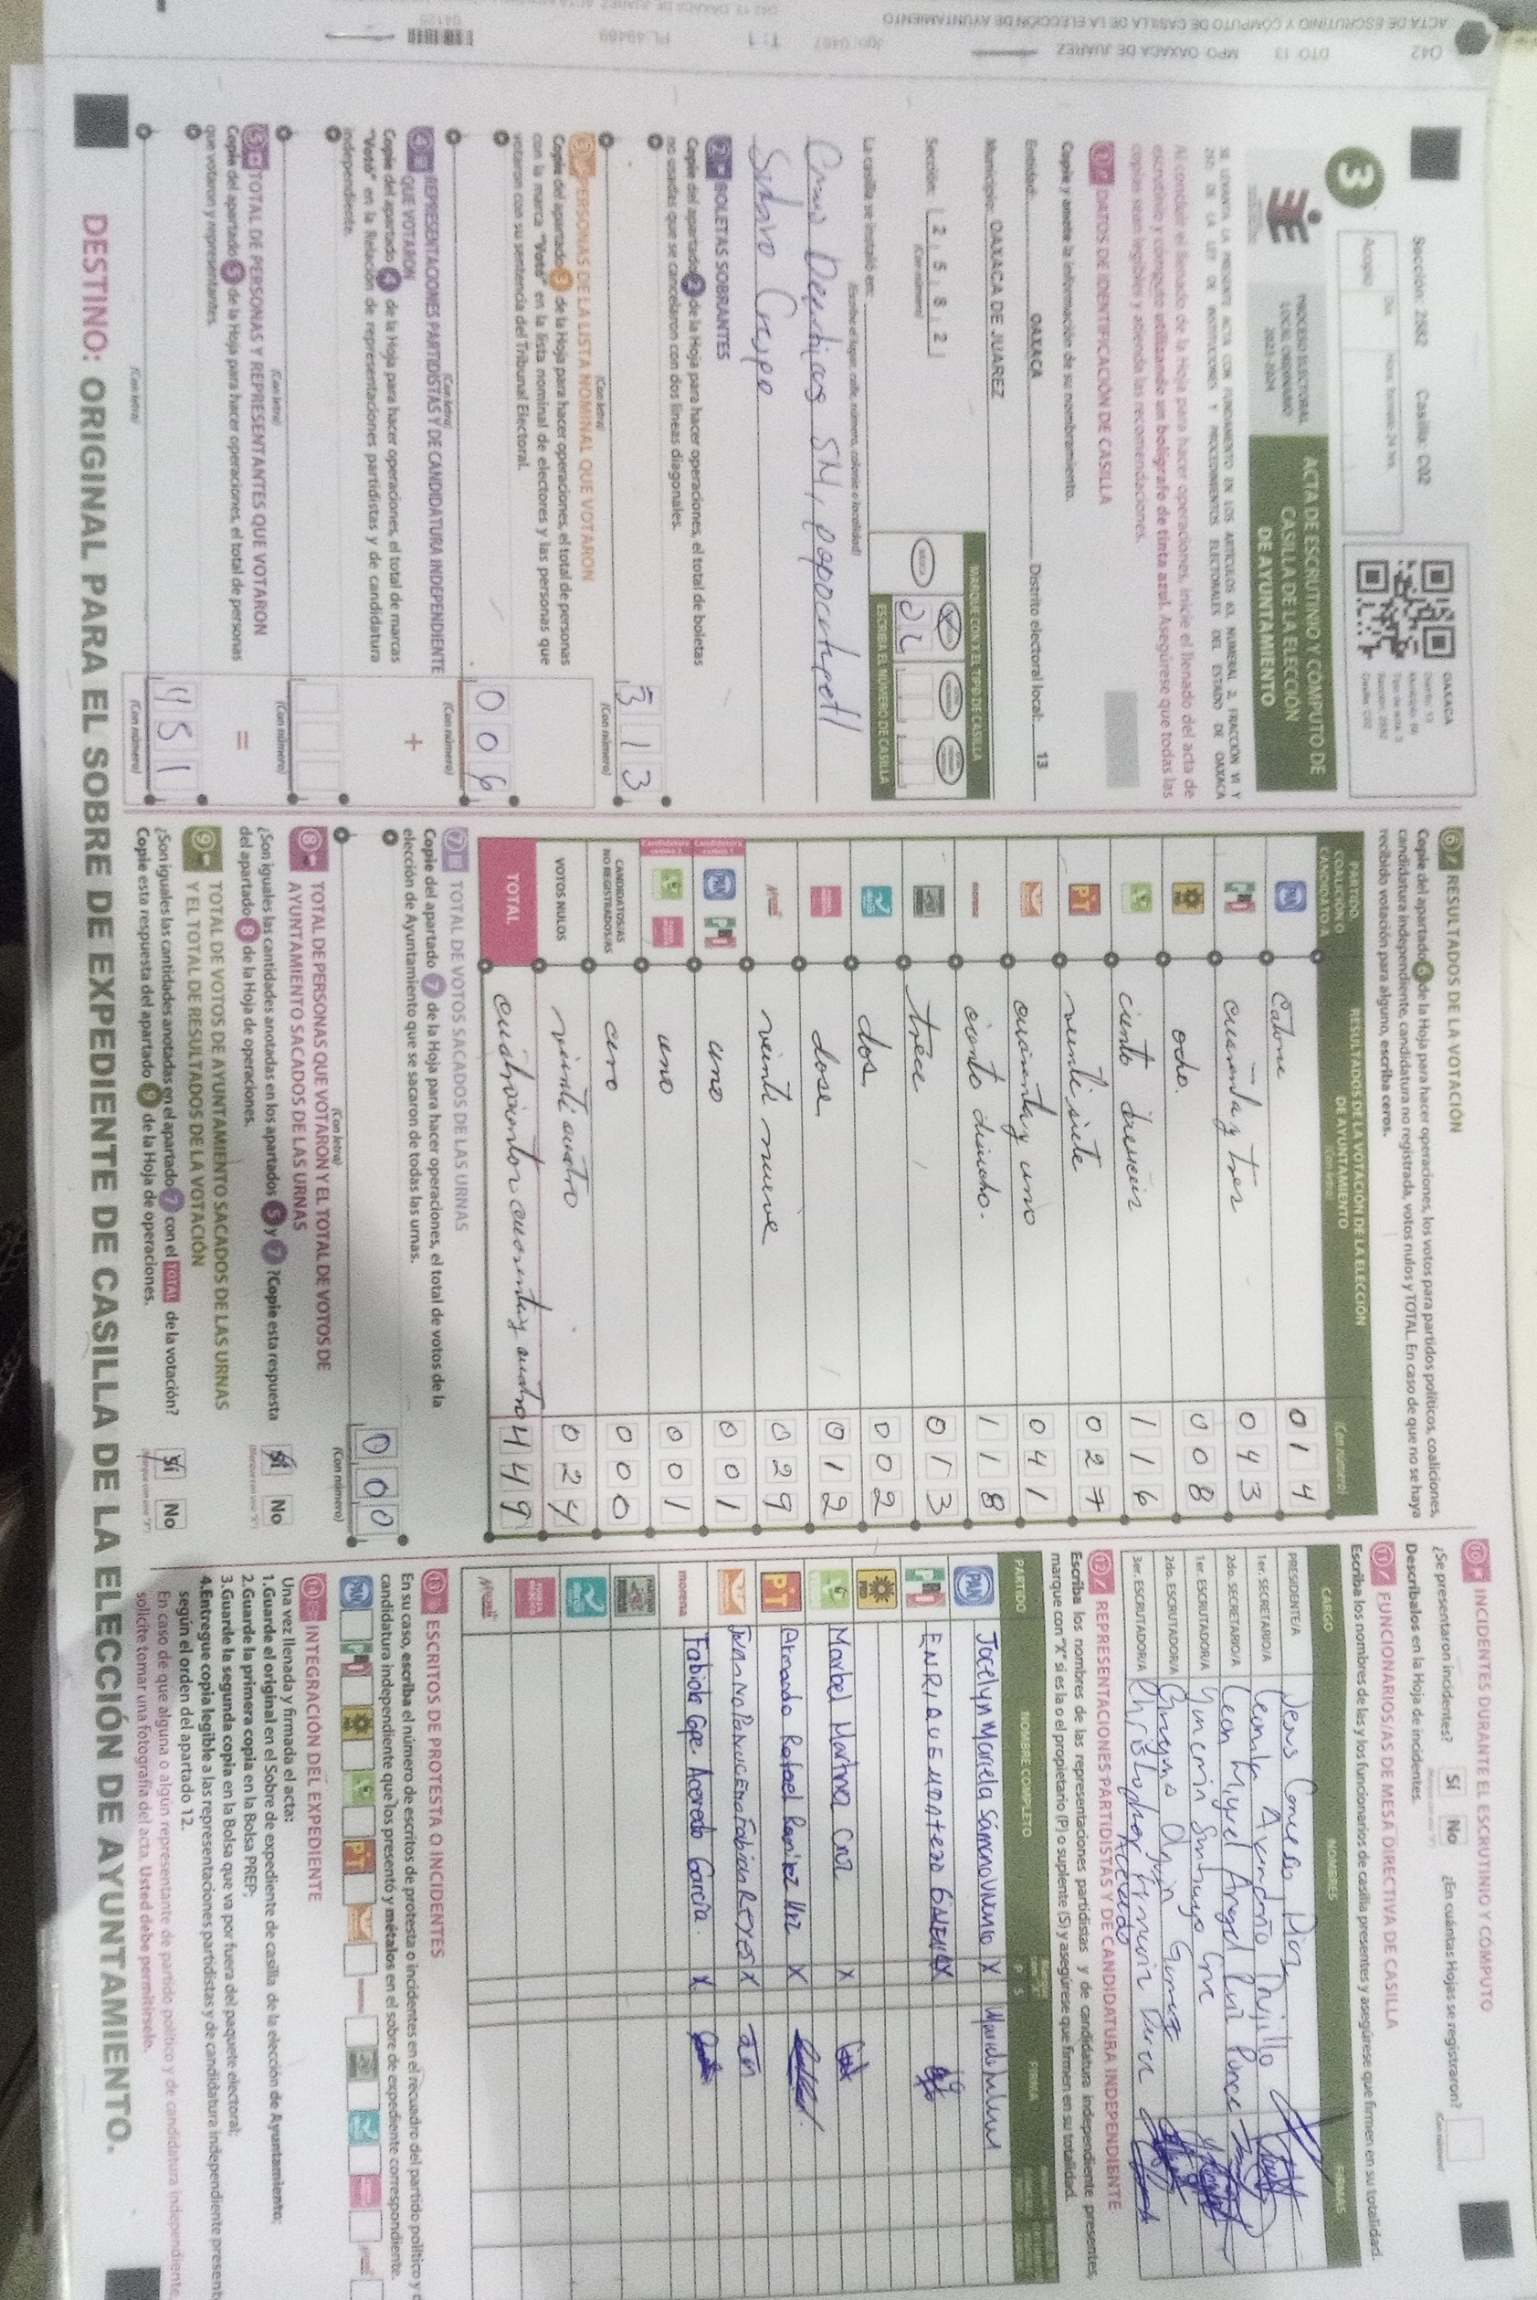 Sección: 2582 Casilla: C02
3
PROCESO ELECTORAL
LOCAL ORDINARIO
2023-2024
ACTA DE ESCRUTINIO Y CÓMPUTO DE
CASILLA DE LA ELECCIÓN
DE AYUNTAMIENTO
OAXACA
Al concluir el llenado de la Hoja para hacer operaciones, inicie el llenado del acta de
escrutinio y cómputo utilizando un bolígrafo de tinta azul. Asegúrese que todas las
copias sean legibles y atienda las recomendaciones.
1 DATOS DE IDENTIFICACIÓN DE CASILLA
Copie y anote la información de su nombramiento.
Entidad: OAXACA Distrito electoral local: 13
Municipio: OAXACA DE JUAREZ
Sección: 2 5 8 2
(Con número)
MARQUE CON X EL TIPO DE CASILLA
ESCRIBA EL NÚMERO DE CASILLA
La casilla se instaló en:
(Escriba el lugar, calle, número, colonia o localidad)
2 BOLETAS SOBRANTES
Copie del apartado 2 de la Hoja para hacer operaciones, el total de boletas
no usadas que se cancelaron con dos líneas diagonales.
313
(Con letra) (Con número)
3 PERSONAS DE LA LISTA NOMINAL QUE VOTARON
Copie del apartado 3 de la Hoja para hacer operaciones, el total de personas
con la marca "Votó" en la lista nominal de electores y las personas que
votaron con su sentencia del Tribunal Electoral.
006
(Con letra) (Con número)
4 REPRESENTACIONES PARTIDISTAS Y DE CANDIDATURA INDEPENDIENTE
QUE VOTARON
+
Copie del apartado 4 de la Hoja para hacer operaciones, el total de marcas
"Votó" en la Relación de representaciones partidistas y de candidatura
independiente.
(Con letra) (Con número)
5 TOTAL DE PERSONAS Y REPRESENTANTES QUE VOTARON
=
Copie del apartado 5 de la Hoja para hacer operaciones, el total de personas
que votaron y representantes.
451
(Con letra) (Con número)
6 RESULTADOS DE LA VOTACIÓN
Copie del apartado 6 de la Hoja para hacer operaciones, los votos para partidos políticos, coaliciones,
candidatura independiente, candidatura no registrada, votos nulos y TOTAL. En caso de que no se haya
recibido votación para alguno, escriba ceros.
PARTIDO, COALICIÓN O CANDIDATO/A
RESULTADOS DE LA VOTACIÓN DE LA ELECCIÓN
DE AYUNTAMIENTO
(Con letra) (Con número)
PAN Catorce 014
PRI cuarenta y tres 043
ocho. 008
ciento dieciséis 116
PT veinte siete 027
cuarenta y uno 041
morena ciento dieciocho. 118
trece 013
dos 002
dose 012
veinte nueve 029
PAN PRI uno 001
uno 001
CANDIDATOS/AS
NO REGISTRADOS/AS cero 000
VOTOS NULOS veinti cuatro 024
TOTAL cuatrocientos cuarenta y cuatro 449
7 TOTAL DE VOTOS SACADOS DE LAS URNAS
Copie del apartado 7 de la Hoja para hacer operaciones, el total de votos de la
elección de Ayuntamiento que se sacaron de todas las urnas.
000
(Con letra) (Con número)
8 TOTAL DE PERSONAS QUE VOTARON Y EL TOTAL DE VOTOS DE
AYUNTAMIENTO SACADOS DE LAS URNAS
¿Son iguales las cantidades anotadas en los apartados 5 y 7? Copie esta respuesta
del apartado 8 de la Hoja de operaciones.
Sí No
9 TOTAL DE VOTOS DE AYUNTAMIENTO SACADOS DE LAS URNAS
Y EL TOTAL DE RESULTADOS DE LA VOTACIÓN
¿Son iguales las cantidades anotadas en el apartado 7 con el TOTAL de la votación?
Copie esta respuesta del apartado 9 de la Hoja de operaciones.
Sí No
10 INCIDENTES DURANTE EL ESCRUTINIO Y CÓMPUTO
¿Se presentaron incidentes? Sí No ¿En cuántas Hojas se registraron?
Descríbalos en la Hoja de incidentes.
11 FUNCIONARIOS/AS DE MESA DIRECTIVA DE CASILLA
Escriba los nombres de las y los funcionarios de casilla presentes y asegúrese que firmen en su totalidad.
CARGO NOMBRES FIRMAS
PRESIDENTE/A
1er. SECRETARIO/A
2do. SECRETARIO/A Leon Miguel Angel Ruiz Ponce
1er. ESCRUTADOR/A
2do. ESCRUTADOR/A
3er. ESCRUTADOR/A
12 REPRESENTACIONES PARTIDISTAS Y DE CANDIDATURA INDEPENDIENTE
Escriba los nombres de las representaciones partidistas y de candidatura independiente presentes,
marque con "X" si es la o el propietario (P) o suplente (S) y asegúrese que firmen en su totalidad.
PARTIDO NOMBRE COMPLETO P S FIRMA
PAN Jocelyn Mariela Sámano Vivenio X
PRI ENRIQUE MONTERO X
PRD
Maribel Martinez Cruz X
PT Armando Rafael Ramirez Hrz X
X
morena Fabiola Gpe. Acevedo Garcia. X
13 ESCRITOS DE PROTESTA O INCIDENTES
En su caso, escriba el número de escritos de protesta o incidentes en el recuadro del partido político y
candidatura independiente que los presentó y métalos en el sobre de expediente correspondiente.
14 INTEGRACIÓN DEL EXPEDIENTE
Una vez llenada y firmada el acta:
1.Guarde el original en el Sobre de expediente de casilla de la elección de Ayuntamiento;
2.Guarde la primera copia en la Bolsa PREP;
3.Guarde la segunda copia en la Bolsa que va por fuera del paquete electoral;
4.Entregue copia legible a las representaciones partidistas y de candidatura independiente
según el orden del apartado 12.
En caso de que alguna o algún representante de partido político y de candidatura independiente,
solicite tomar una fotografía del acta. Usted debe permitírselo.
DESTINO: ORIGINAL PARA EL SOBRE DE EXPEDIENTE DE CASILLA DE LA ELECCIÓN DE AYUNTAMIENTO.